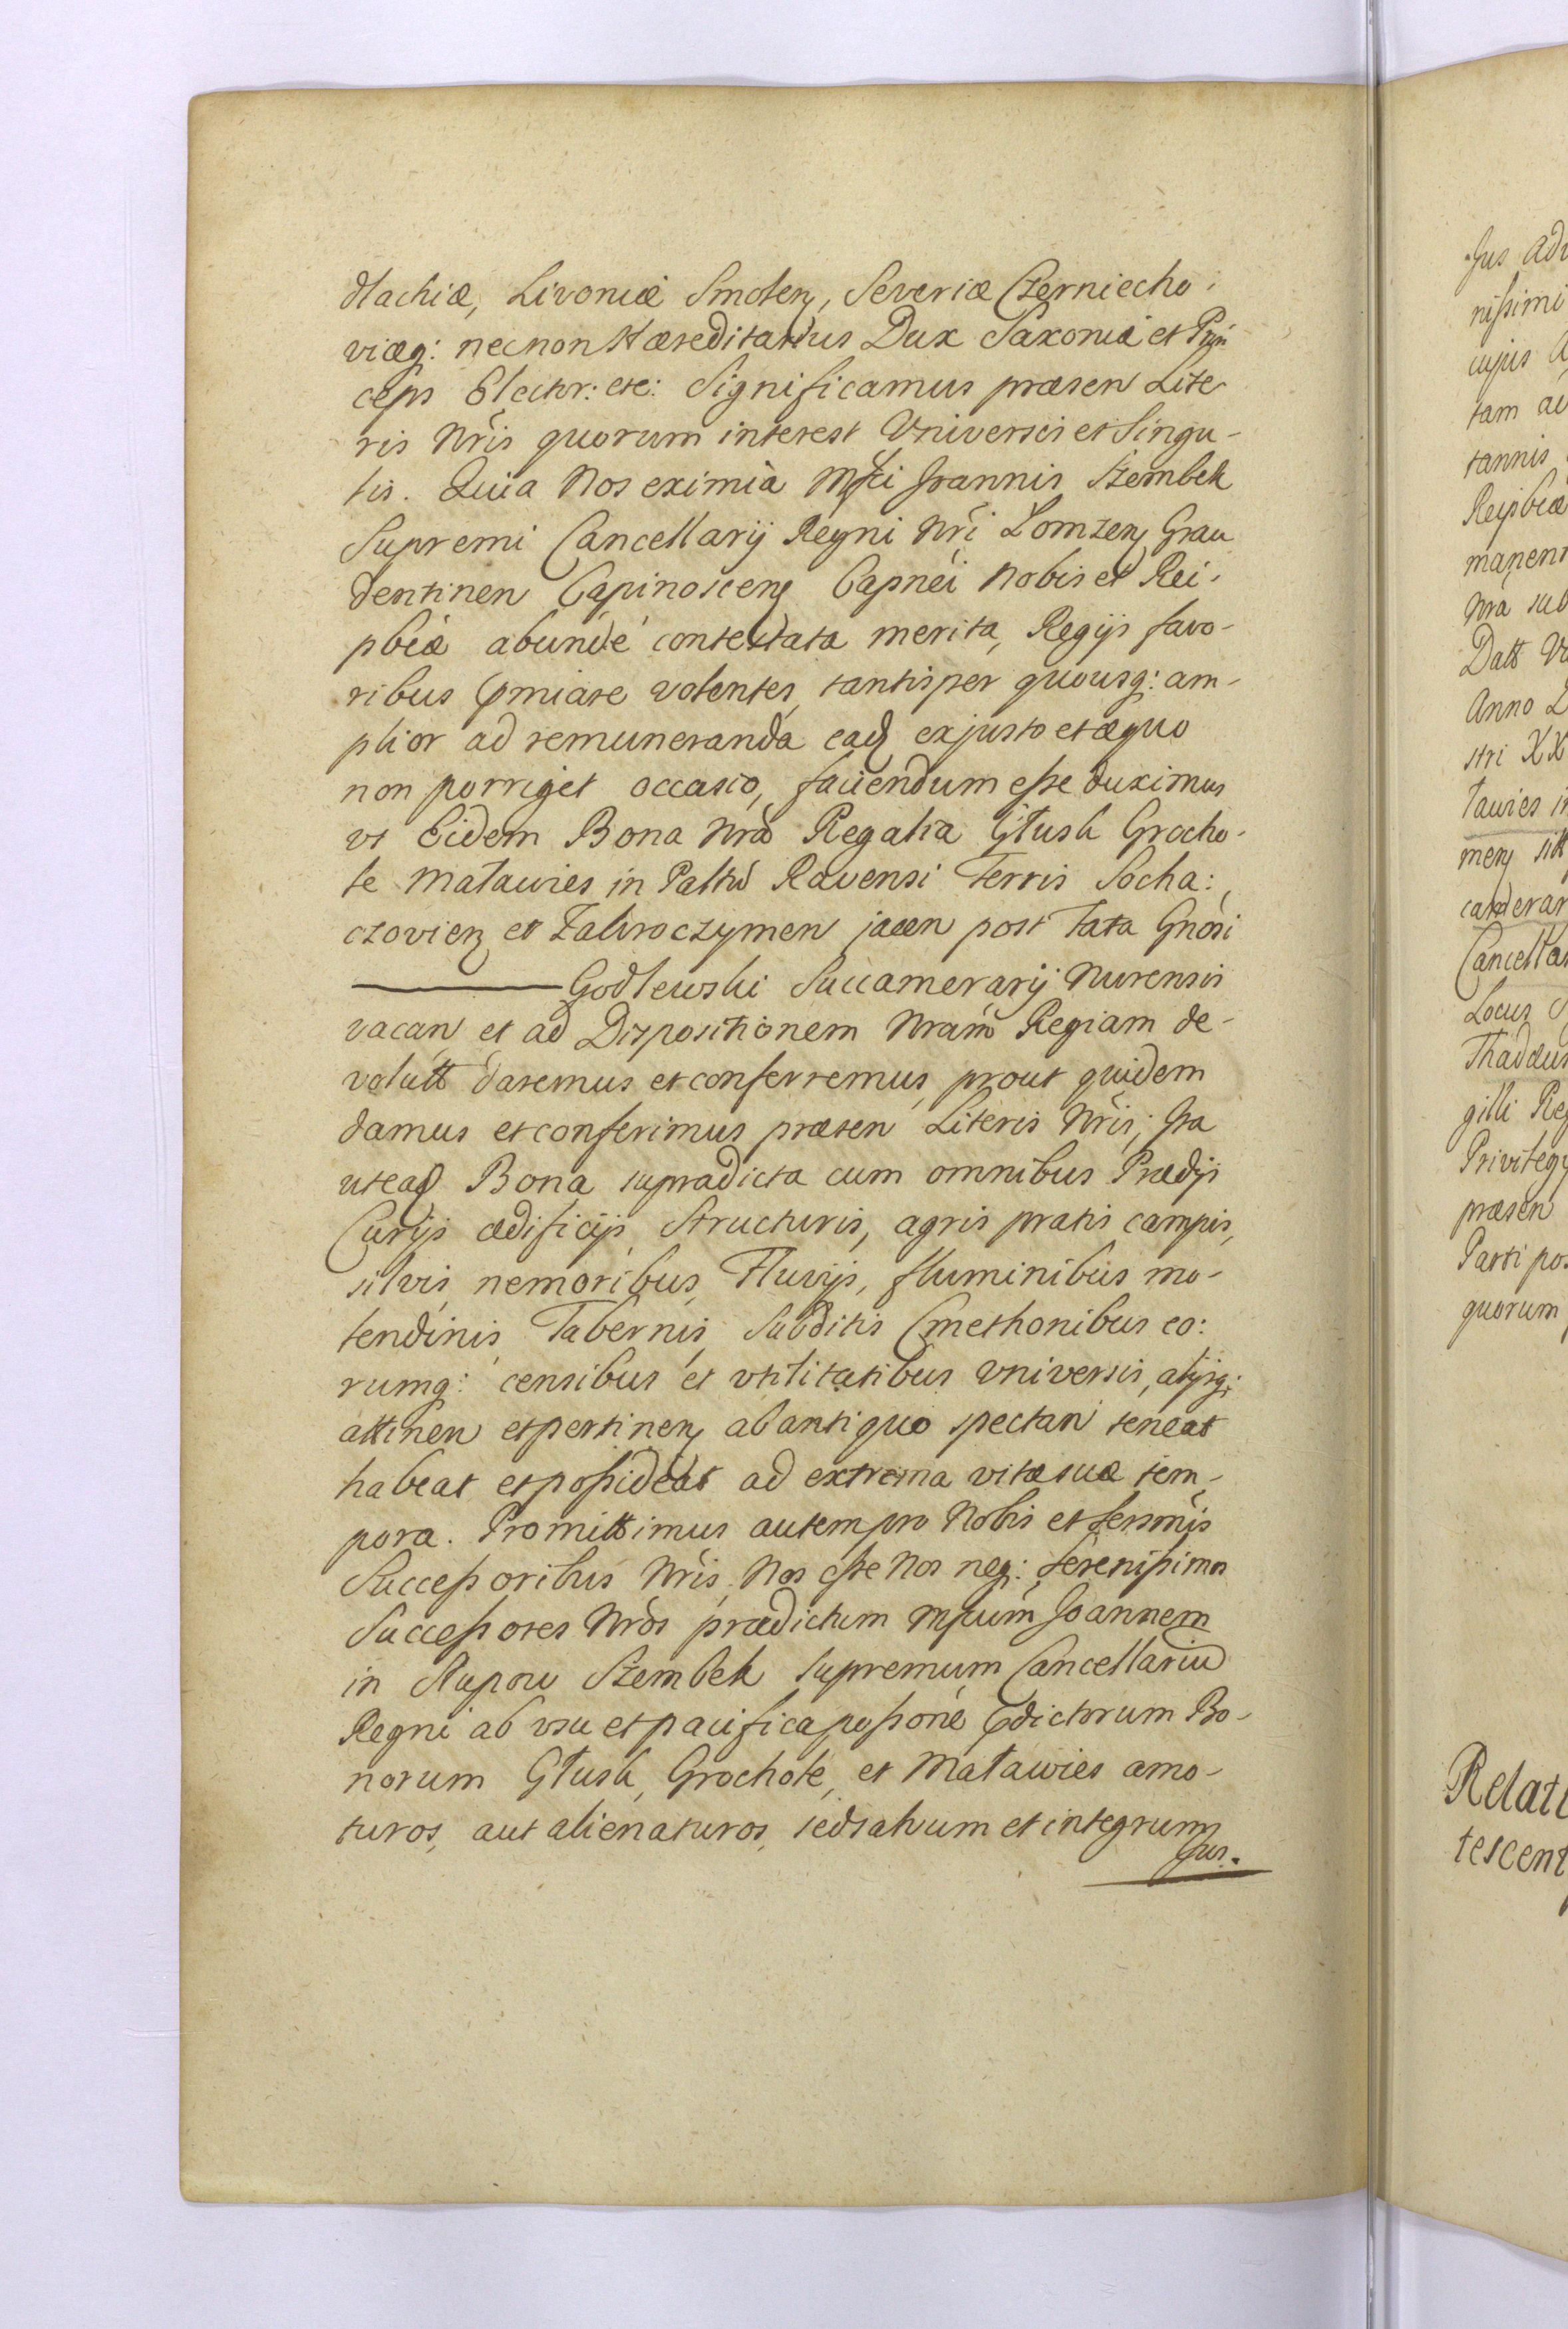 dlachiæ, Livoniæ Smolen, Severiæ Czerniecho-
viæq: necnon Hæreditarius Dux Saxoniæ et Prin
ceps Elector: etc: Significamus præsen Lite-
ris Nris quorum interest Universis et Singu-
lis. Quia Nos eximia Mfci Joannis Szembek
Supremi Cancellarij Regni Nri Lomzen Grau
dentinen Capinoscen Capnei Nobis et Rei-
pbcæ abundé contestata merita, Regijs favo-
ribus pmiare volentes, tantisper quousq: am-
plior ad remuneranda ead ex justo et æquo
non porriget occasio, faciendum esse duximus
vt Eidem Bona Nra Regalia Głusk Grocho-
le Maławies in Paltu Ravensi Terris Socha:
czovien et Zakroczymen jacen post Fata Gnosi
——— Godlewski Succamerarij Nurensis
vacan et ad Dispositionem Nram Regiam de-
volutt daremus et conferremus, prout quidem
damus et conferimus præsen Literis Nris, Ita
ut ead Bona supradicta cum omnibus Prædijs
Curijs ædificijs, Structuris, agris pratis campis,
silvis, nemoribus, Fluvijs, fluminibus mo-
lendinis, Tabernis, Subditis Cmethonibus eo:
rumq: censibus et vtilitatibus Vniversis, alijsq:
attinen et pertinen ab antiquo spectan teneat
habeat et possideat ad extrema vitæ suæ tem-
pora. Promittimus autem pro Nobis et Sermis
Successoribus Nris, Nos esse Nos neq: Serenissimos
Successores Nros prædictum Mfcum Joannem
in Słupow Szembek Supremum Cancellariu
Regni ab vsu et pacifica possone pdictorum Bo-
norum Głusk, Grochole, et Maławies amo-
turos, aut alienaturos, sed salvum et integrum
Jus.
Jus
nissimi
cujus
tam
tannis
Reipbcæ
manen
Nra sub
Datt
Anno
stri XX
ławies
men
Cancella
Locus
Thaddæus
gilli Reg
Privilegy
præsen
Parti pos
quorum
Relati
tescent